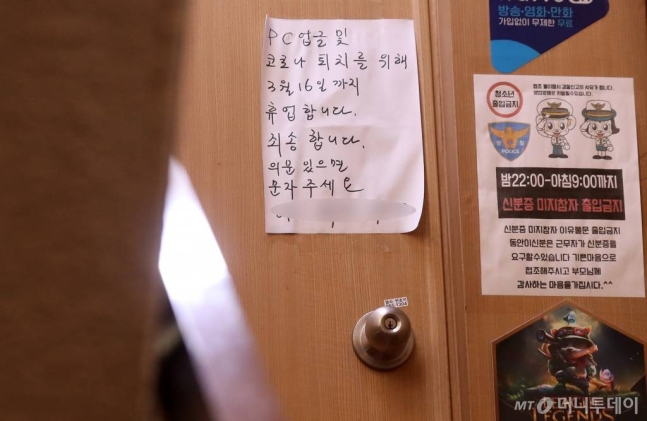 방송·영화·만화
가입없이 무제한 무료
PC업글 및
코로나 퇴치를 위해
3월 16일까지
휴업합니다.
죄송합니다.
의문있으면
문자주세요
청소년
출입금지
POLICE
밤22:00-아침9:00까지
신분증 미지참자 출입금지
신분증 미지참자 이유불문 출입금지
동안이신분은 근무자가 신분증을
요구할수있습니다 기쁜마음으로
협조해주시고 부모님께
감사하는 마음을가집시다.^^
LEGENDS
MT 머니투데이